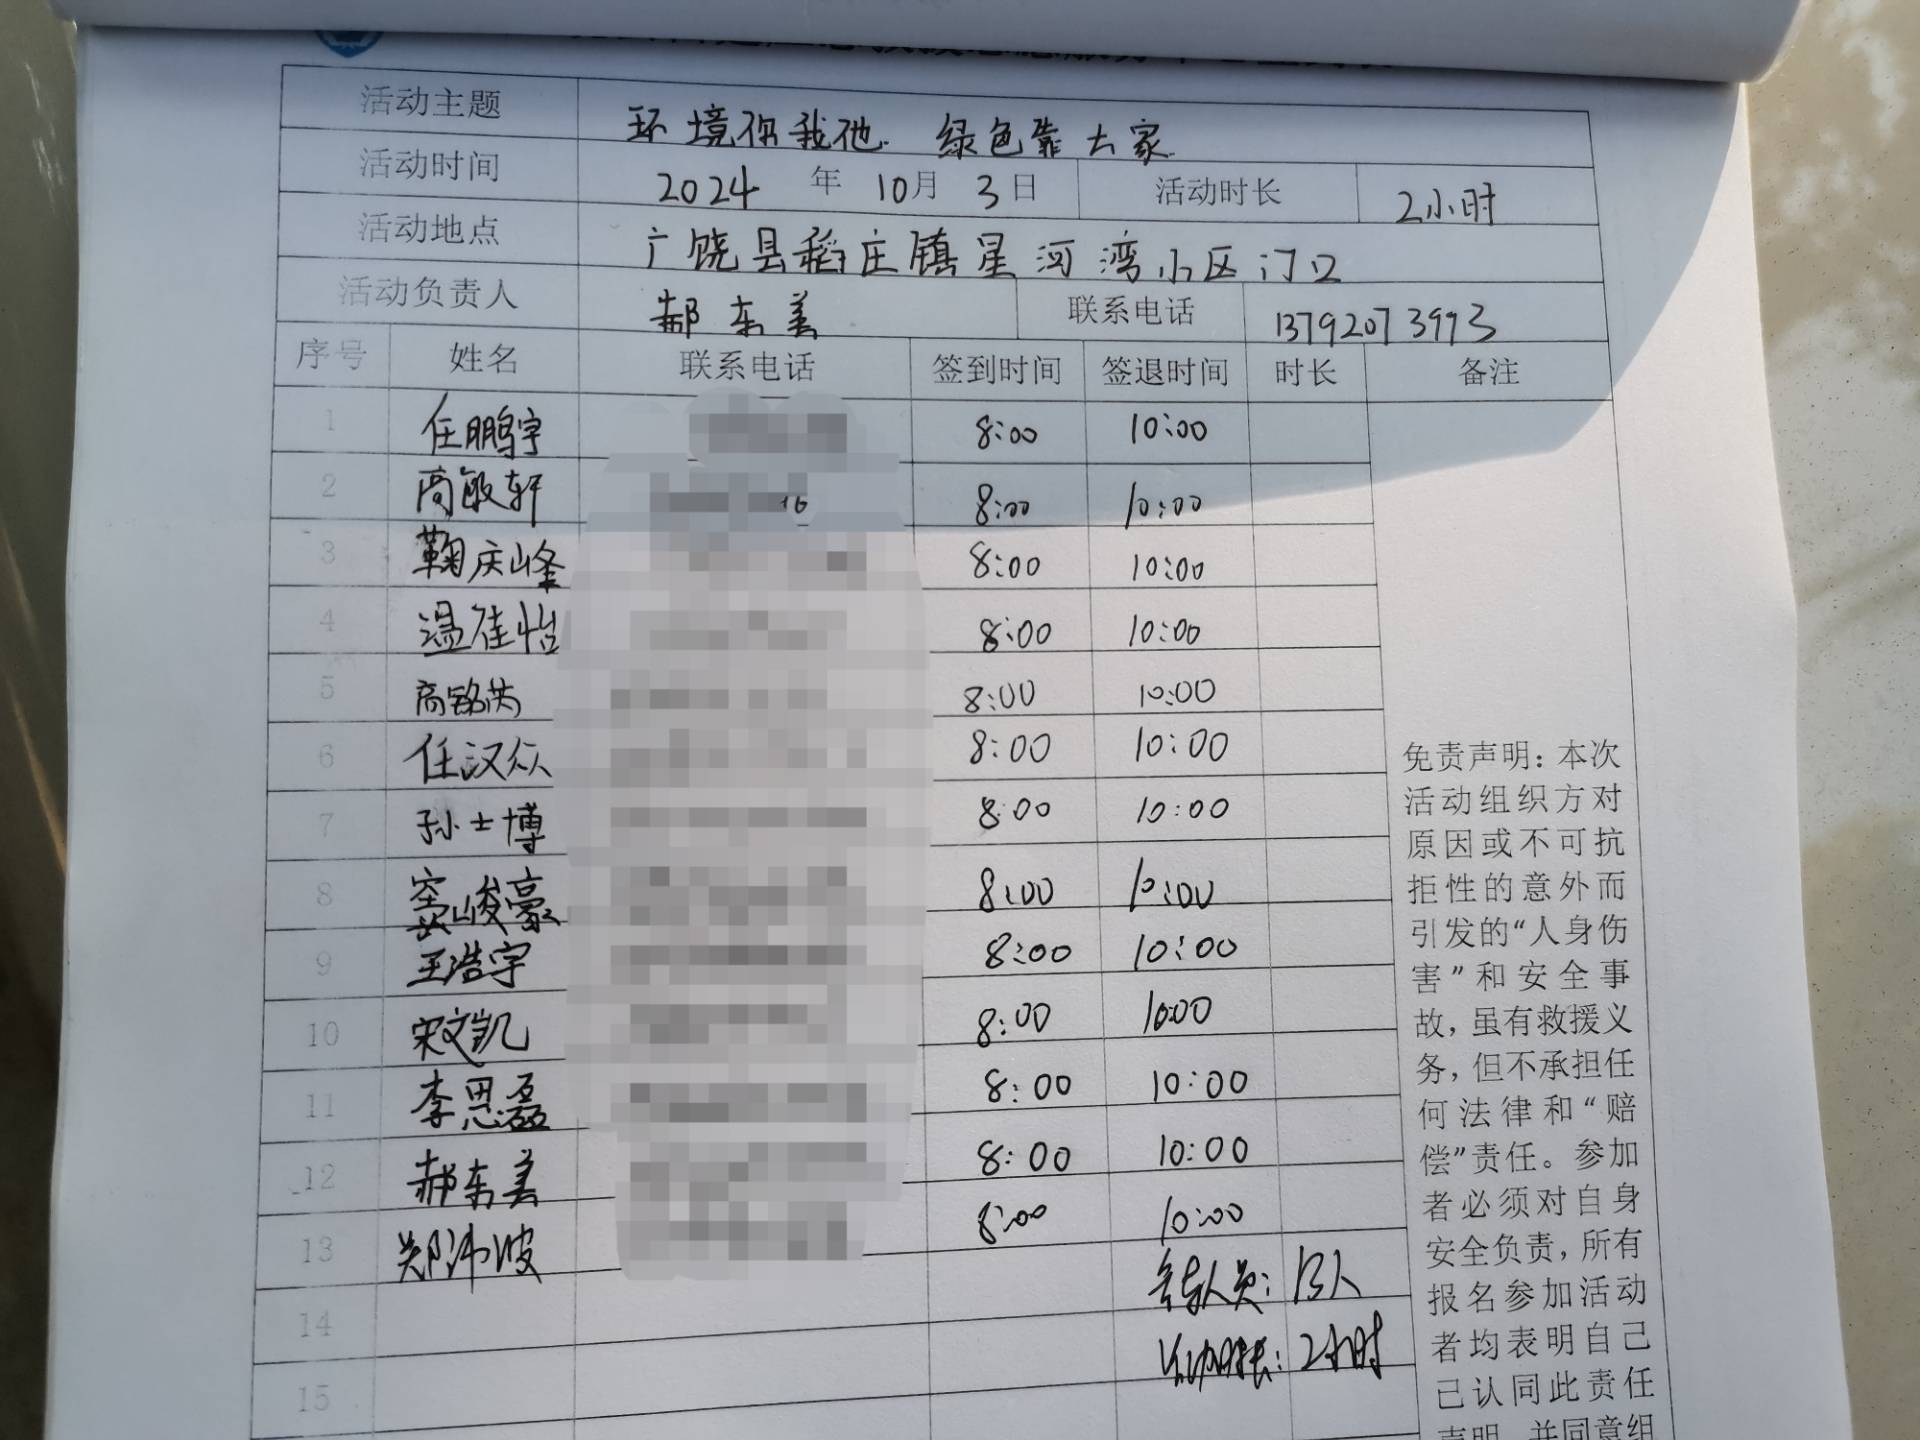 活动主题 环境你我他 绿色靠大家
活动时间 2024 年 10月 3日 活动时长 2小时
活动地点 广饶县稻庄镇星河湾小区门口
活动负责人 郝东美 联系电话 13792073993
序号 姓名 联系电话 签到时间 签退时间 时长 备注
1 任鹏宇 8:00 10:00
2 商敏轩 16 8:00 10:00
3 鞠庆峰 8:00 10:00
4 温佳怡 8:00 10:00
5 商铭洪 8:00 10:00
6 任汉众 8:00 10:00
7 孙士博 8:00 10:00
8 峻豪 8:00 10:00
9 王浩宇 8:00 10:00
10 宋文凯 8:00 10:00
11 李思磊 8:00 10:00
12 郝东美 8:00 10:00
13 郑沛波 8:00 10:00
14 人员: 13人
15 时长: 2小时
免责声明: 本次
活动组织方对
原因或不可抗
拒性的意外而
引发的“人身伤
害”和安全事
故, 虽有救援义
务, 但不承担任
何法律和“赔
偿”责任。参加
者必须对自身
安全负责, 所有
报名参加活动
者均表明自己
已认同此责任
声明, 并同意组